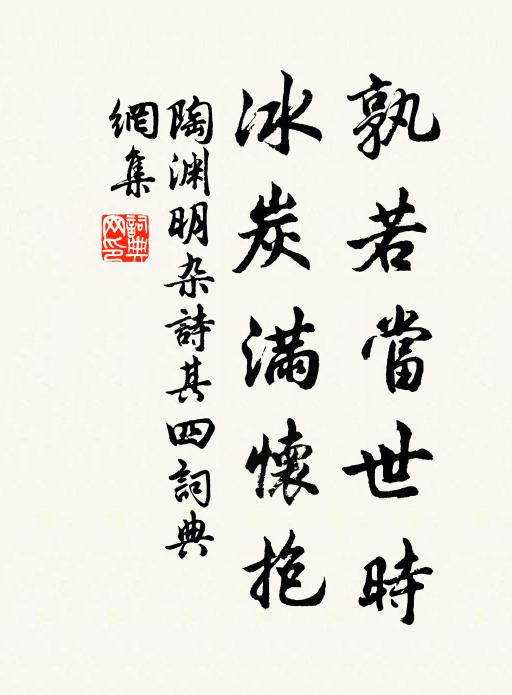 孰若當世時
冰炭滿懷抱
陶渊明杂詩其四詞典
網集
詞典網印